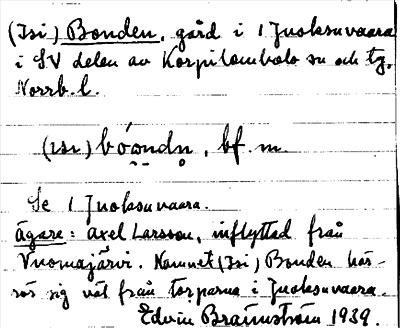 (Isi) Bonden, gård i 1 Juoksuvaara
i S.V delen av Korpilombolo sn och tg,
Norrb. l.
(ısı) bóondn, bf. m.
Se 1 Juoksuvaara.
Ägare: Axel Larsson, inflyttad från
Vuomajärvi. Namnet (Isi) Bonden här-
rör sig väl från torparna i Juoksuvaara.
Edvin Brännström 1939.